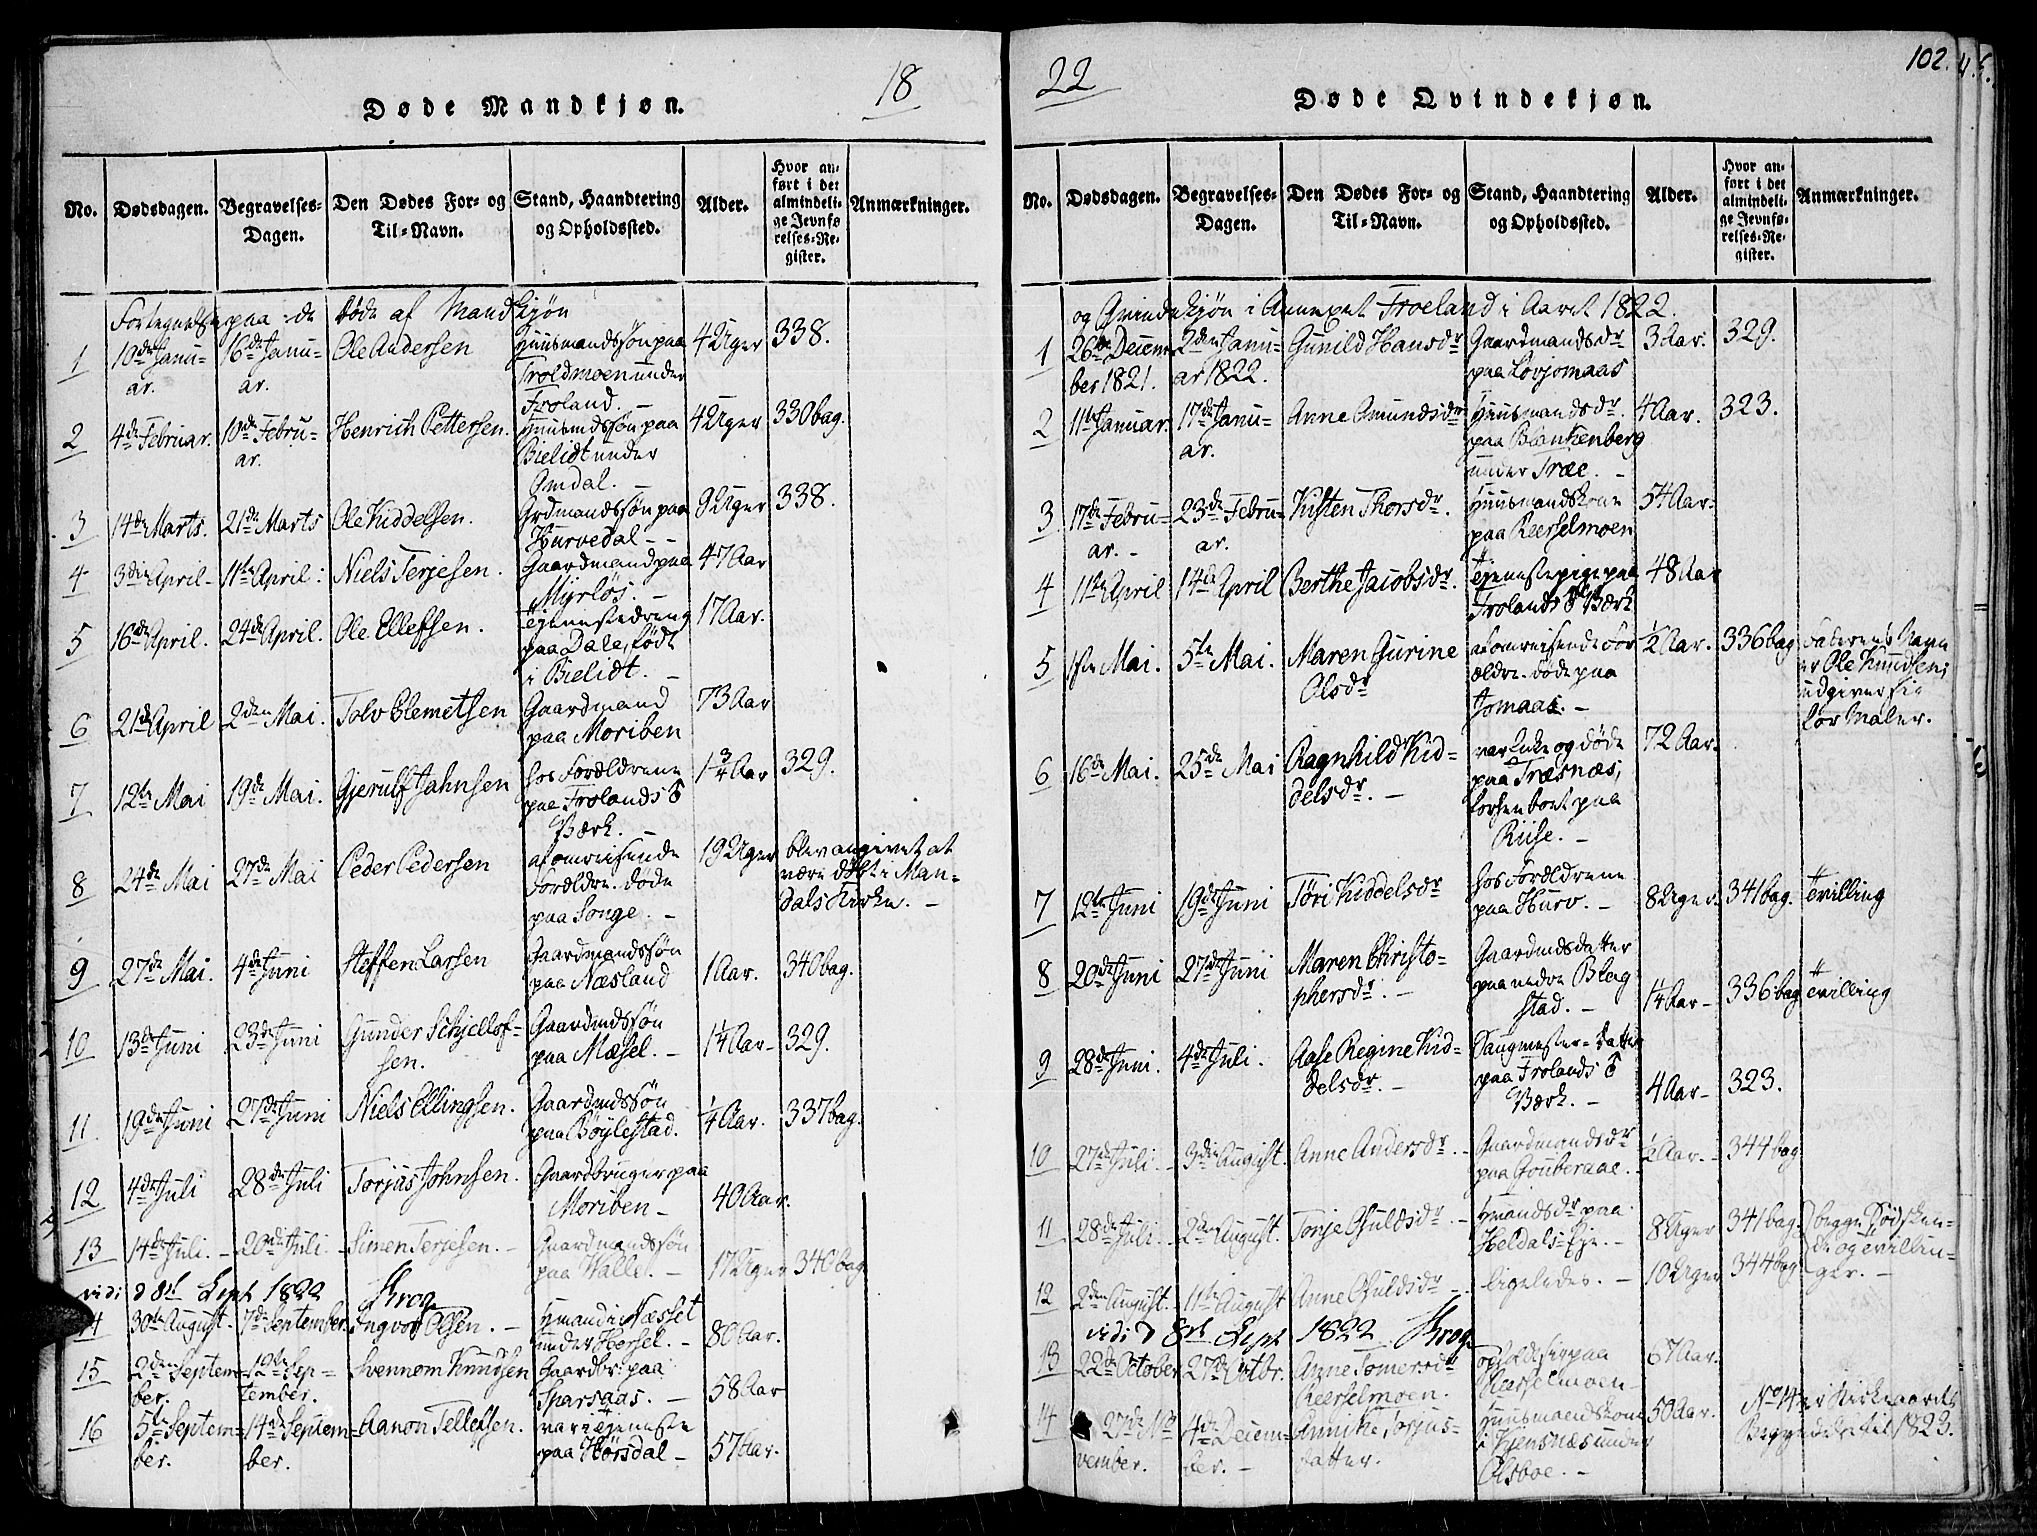 102.
18
22
Døde Mandkjøn.
Døde Qvindekjøn.
No.
Dødsdagen.
Begravelses-Dagen.
Den Dødes For- og Til-Navn.
Stand, Haandtering og Opholdssted.
Alder.
Hvor anført i det almindelige Jevnførelses-Register.
Anmærkninger.
Fortegnelse paa de døde af Mandkjøn
1 10de Januar. 16de Januar. Ole Andersen Huusmandssøn paa Troldmoen under Froland. 4 Uger 338.
2 4de Februar. 10de Februar. Henrich Pettersen. Huusmdssøn paa Bielidt under Omdal. 4 Uger 330 bag.
3 14de Marts. 21de Marts Ole Kiddelsen. Grdmandssøn paa Hurvedal 9 Uger 338.
4 3die April 11te April: Niels Terjesen. Gaardmand paa Myrløs. 47 Aar
5 16de April. 24de April. Ole Ellefsen. paa Dale, født i Bielidt. 17 Aar.
6 21de April 2den Mai. Tolv Clemetsen Gaardmand paa Moriben 73 Aar
7 12te Mai 19de Mai. Gjerulf Jahnsen hos Forældrene paa Frolands Værk. 1 3/4 Aar 329.
8 24de Mai 27de Mai Peder Pedersen af omreisende Forældre. døde paa Songe. 19 Uger blev angivet at være døbt i Mandals Kirke.
9 27de Mai. 4de Juni Steffen Larsen Gaardmandssøn paa Næsland 1 Aar. 340 bag.
10 13de Juni 23de Juni Gunder Schjellefsen. Gaardmdssøn paa Mæsel. 1 1/4 Aar 329.
11 19de Juni 27de Juni Niels Ellingsen. Gaardmdssøn paa Bøylestad. 1/4 Aar. 337 bag.
12 4de Juli 28de Juli Torjus Johnsen. Gaardbruger paa Moriben 40 Aar.
13 14de Juli. 20de Juli. Simen Terjesen. Gaardmandssøn paa Walle. 17 Uger 340 bag
vidi d 8de Sept 1822 Krog
14 30te August. 7de September. Ingvor Olsen. Hmand i Næsset under Hersel. 80 Aar.
15 2den September. 12te September. Svennom Knudsen Gaardbr: paa Sparsaas. 58 Aar
16 5te September. 14de September. Aanon Tellefsen. var i Tjeneste paa Hørsdal 57 Aar.
No.
Dødsdagen.
Begravelses-Dagen.
Den Dødes For- og Til-Navn.
Stand, Haandtering og Opholdssted.
Alder.
Hvor anført i det almindelige Jevnførelses-Register.
Anmærkninger.
og Qvindekjøn i Annexet Froeland i Aaret 1822.
1 26de December 1821. 2den Januar 1822. Gunild Hansdr Gaardmandsdr paa Lovjomaas 3 Aar. 329.
2 11te Januar. 17de Januar. Anne Omundsdr Huusmandsdr. paa Blankenberg under Træe. 4 Aar. 323.
3 17de Februar. 23de Februar. Kisten Thorsdr. Huusmandskone paa Reerselmoen 54 Aar.
4 11te April 14de April Berthe Jacobsdr. Tjenestepige paa Frolands Værk 48 Aar
5 1ste Mai. 5te Mai. Maren Gurine Olsdr af omreisende Forældre. døde paa Jomaas. 1/2 Aar. 336 bag Faderens Navn er Ole Knudsen, udgiver sig for Maler.
6 16de Mai. 25de Mai Ragnhild Kiddelsdr. var Enke og døde paa Træsnæs, paa Riise. 72 Aar.
7 12te Juni 19de Juni Tøri Kiddelsdr hos Forældrene paa Hurv. 8 Uger. 341 bag. Tvilling
8 20de Juni 27de Juni Maren Christophersdr. Gaardmdsdatter paa nedre Blagstad. 1/4 Aar 336 bag Tvilling
9 28de Juni. 4de Juli. Aase Regine Kiddelsdr. Saugmester-datter paa Frolands Værk. 4 Aar 323.
10 27de Juli. 3die August. Anne Andersdr. Gaardmandsdr paa Gouberaae. 1/2 Aar. 344 bag
11 28de Juli. 2den August. Torje Gjulsdr. Hmandsdr paa Heldals Eje. 8 Uger 341 bag. begge Sødskende og Tvillinger.
12 2den August. 11te August Anne Gjulsdr ligeledes. 10 Uger 344 bag.
vidi d 8de Sept 1822 Krog
13 22de October 27de Octbr. Anne Tomersdr Reerselmoen. opholdt sig paa Reerselmoen 67 Aar.
14 27de November. 4de December. Annike Torjusdatter. Huusmandskone i Kjensnæs under Olsboe. 50 Aar.
No 14 er Kirkegaards Beggndelse til 1823.